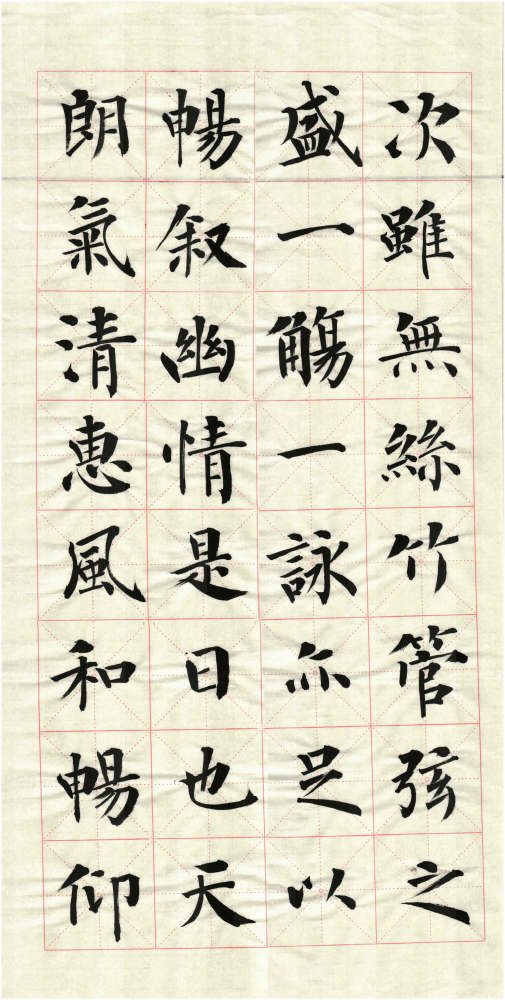 次雖無絲竹管弦之
盛一觴一詠亦足以
暢叙幽情是日也天
朗氣清惠風和暢仰